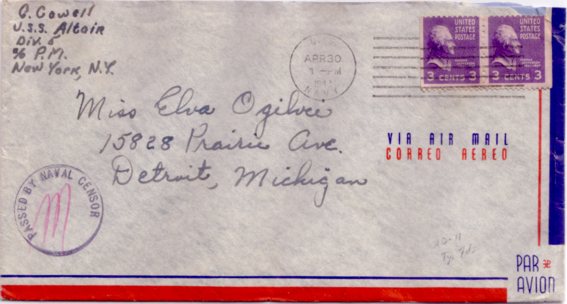 C. Cowell
U.S.S. Altair
Div. 5
% P.M.
New York, N.Y.
APR 30
PM
NAVY
UNITED STATES POSTAGE
3 CENTS 3
UNITED STATES POSTAGE
3 CENTS 3
Miss Elva Ogilvie
15828 Prairie Ave.
Detroit, Michigan
VIA AIR MAIL
CORREO AEREO
PASSED BY NAVAL CENSOR
M
PAR
AVION